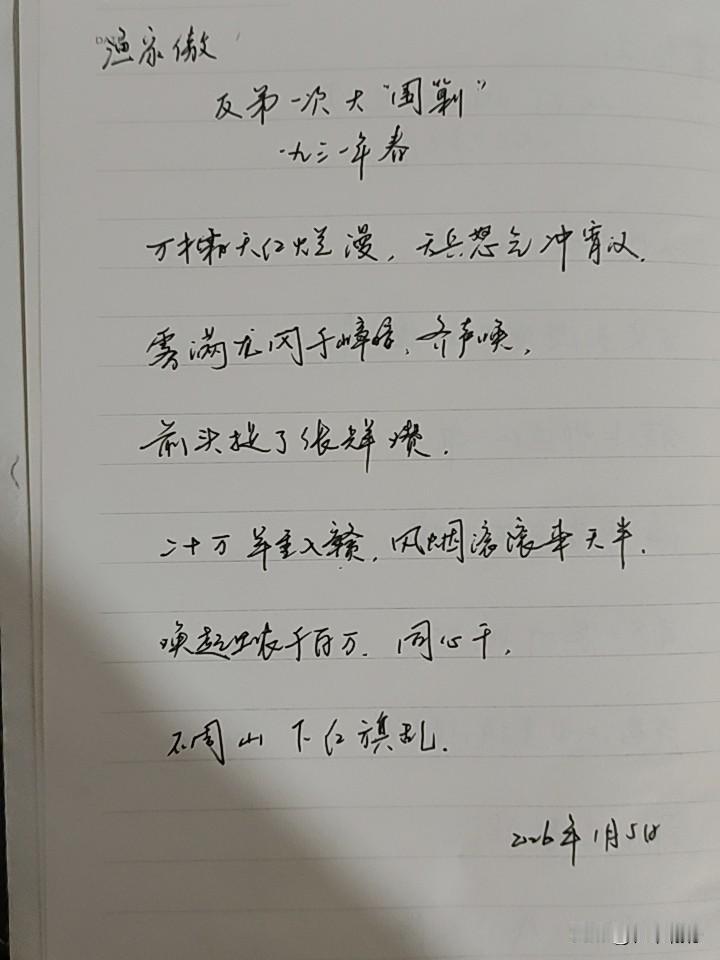 渔家傲
反第一次大“围剿”
一九三一年春
万木霜天红烂漫,天兵怒气冲霄汉.
雾满龙冈千嶂暗,齐声唤,
前头捉了张辉瓒.
二十万军重入赣,风烟滚滚来天半.
唤起工农千百万.同心干,
不周山下红旗乱.
2026年1月5日